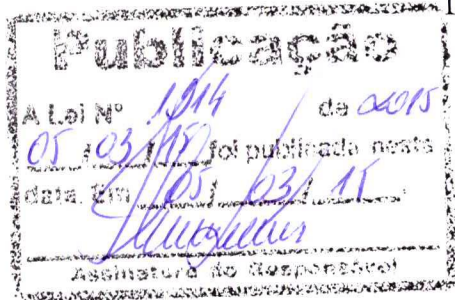 Publicação
A Lei Nº 1.914 de 2015
05/03/15 foi publicada nesta
data. Em 05/03/15
Assinatura do Responsável